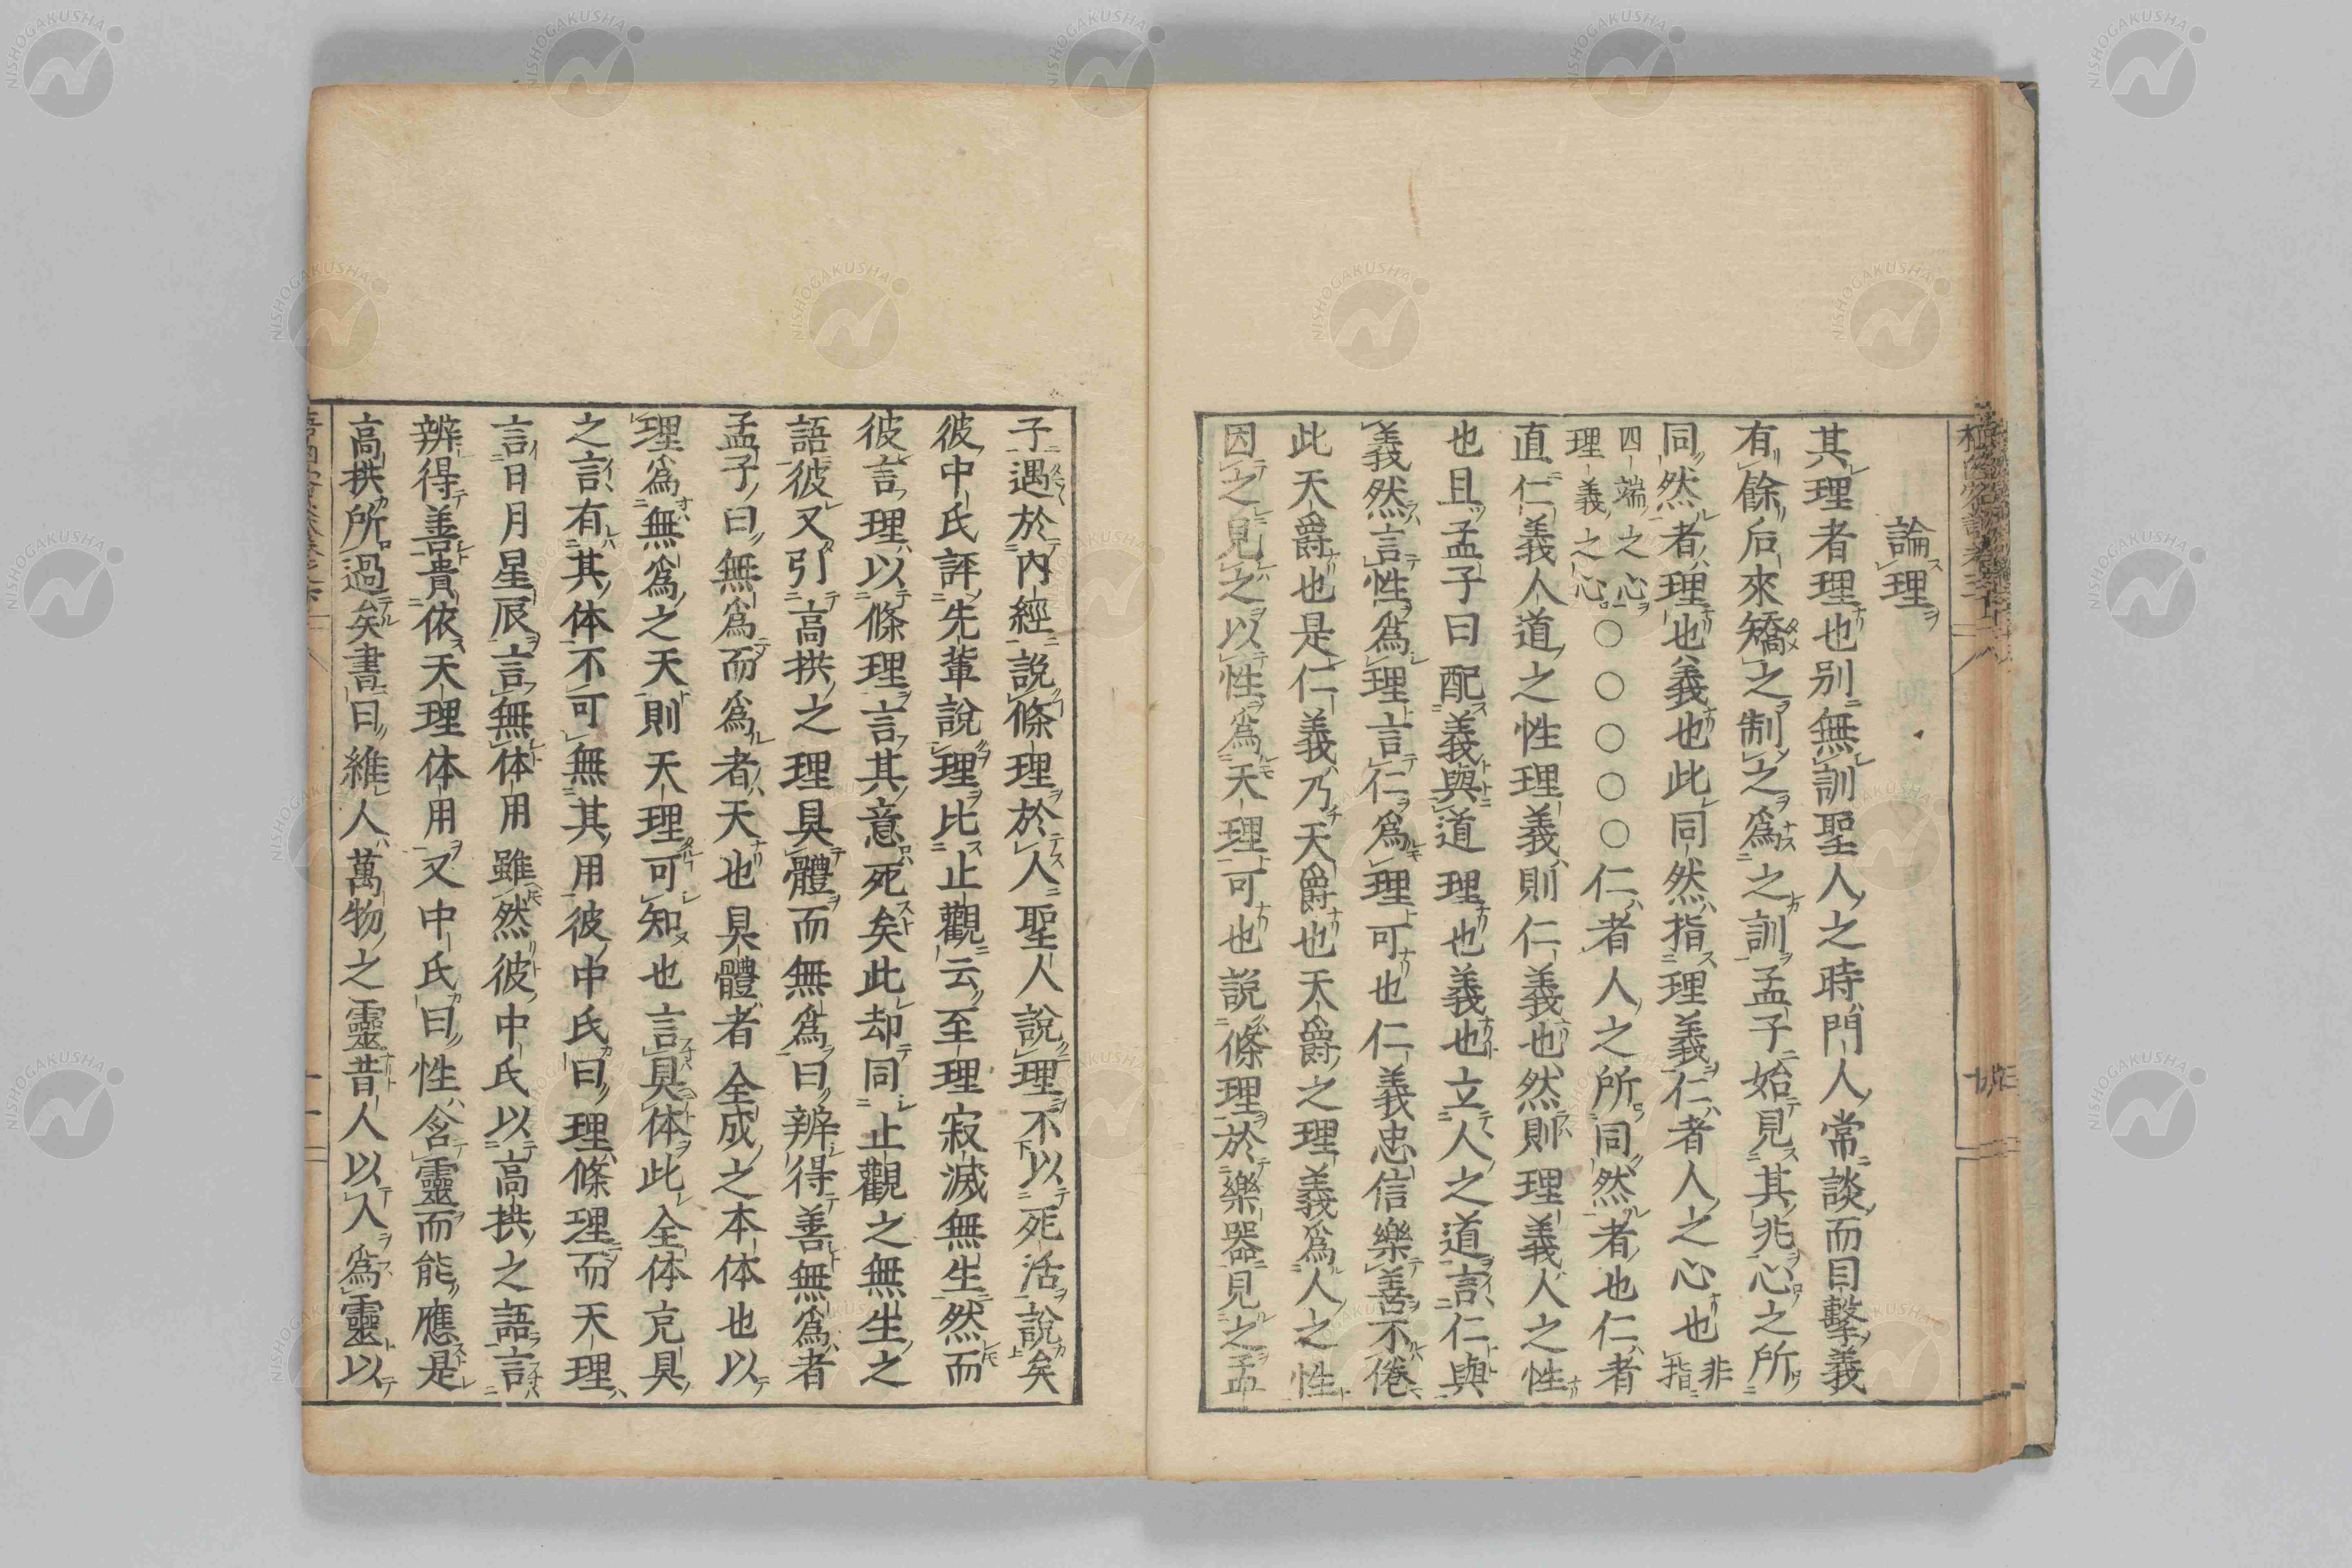 論理
其理者理也別無訓聖人之時門人常談而目擊義
有餘后來矯之制之爲之訓孟子始見其兆心之所
同然者理也義也此同然指理義仁者人之心也非指
四端之心
理義之心○○○○○仁者人之所同然者也仁者
直仁義人道之性理義則仁義也然則理義人之性
也且孟子曰配義與道理也義也立人之道言仁與
義然言性爲理言仁爲理可也仁義忠信樂善不倦
此天爵也是仁義乃天爵也天爵之理義爲人之性
因之見之以性爲天理可也說條理於樂器見之孟
子遇於內經說條理於人聖人說理不以死活說矣
彼中氏評先輩說理比止觀云至理寂滅無生然而
彼言理以條理言其意死矣此却同止觀之無生之
語彼又引高拱之理具體而無爲曰辨得善無爲者
孟子曰無爲而爲者天也具體者全成之本体也以
理爲無爲之天則天理可知也言具体此全体克具
之言有其体不可無其用彼中氏曰理條理而天理
言日月星辰言無体用雖然彼中氏以高拱之語言
辨得善貴依天理体用又中氏曰性含靈而能應是
高拱所過矣書曰維人萬物之靈昔人以人爲靈以
NISHOGAKUSHA